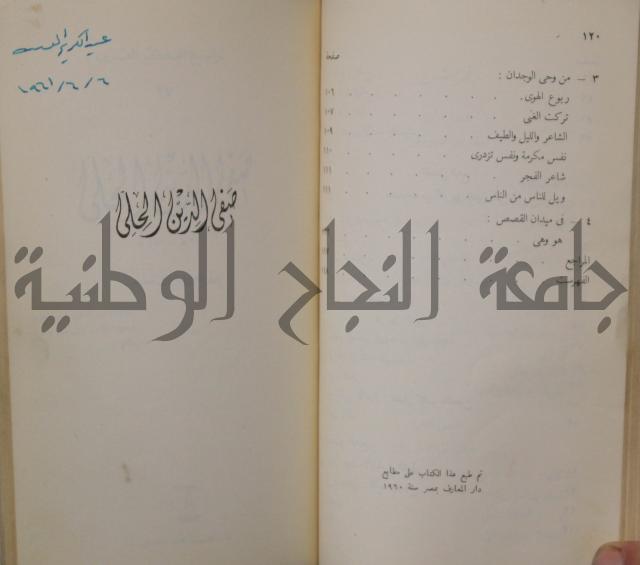 ١٢٠
صفحة
٣ - من وحى الوجدان :
ربوع الهوى . . . . . . . ١٠٦
تركت الغبى . . . . . . . ١٠٧
الشاعر والليل والطيف . . . . . ١٠٩
نفس مكرمة ونفس تزدرى . . . . ١١٠
شاعر الفجر . . . . . . . ١١١
ويل للناس من الناس . . . . . ١١١
٤ - فى ميدان القصص :
هو وهى . . . . . . .
المراجع . . . . . . .
الفهرست . . . . . . .
تم طبع هذا الكتاب على مطابع
دار المعارف بمصر سنة ١٩٦٠
عبد الكريم
١٩٦١/٦/٦
صفى الدين الحلى
جامعة النجاح الوطنية